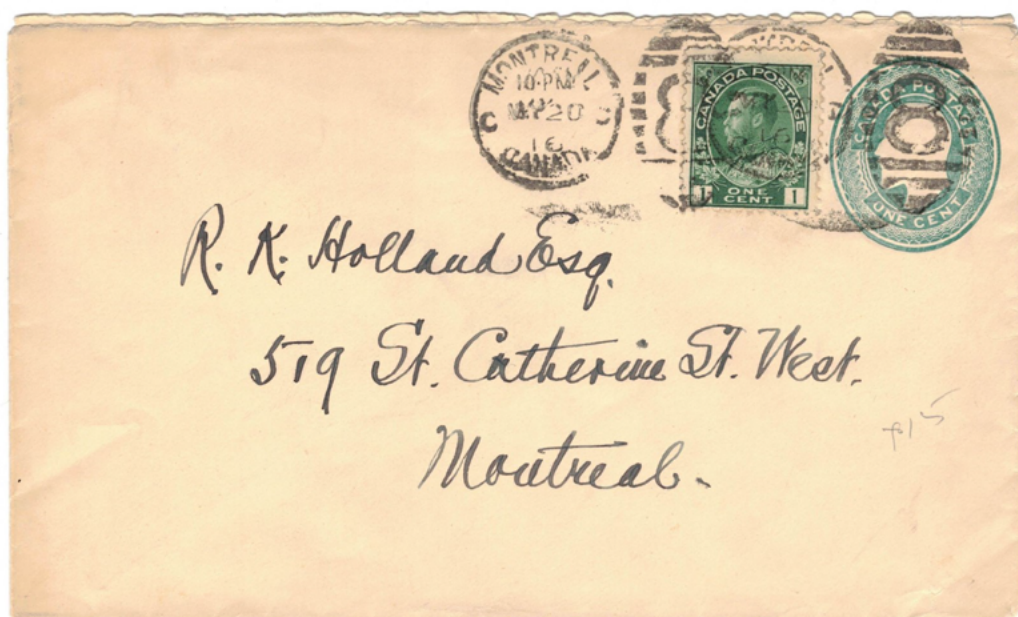 MONTREAL
10-PM
MY 20
16
CANADA
C
CANADA POSTAGE
1 ONE CENT 1
CANADA POSTAGE
ONE CENT
R. K. Holland Esq.
519 St. Catherine St. West.
Montreal.